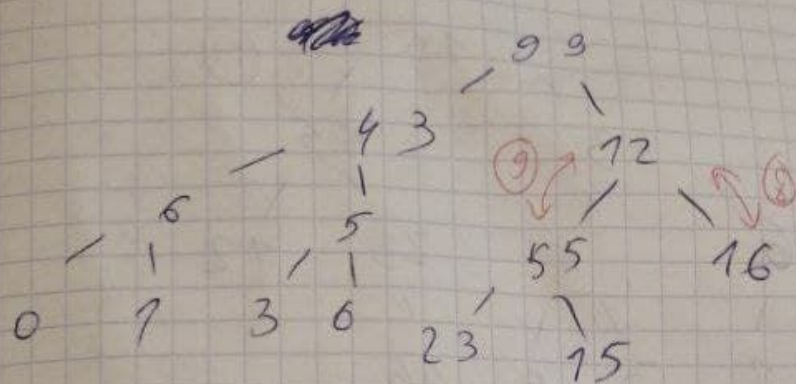 99
43 12
9 8
6 5 55 16
0 1 3 6 23 15